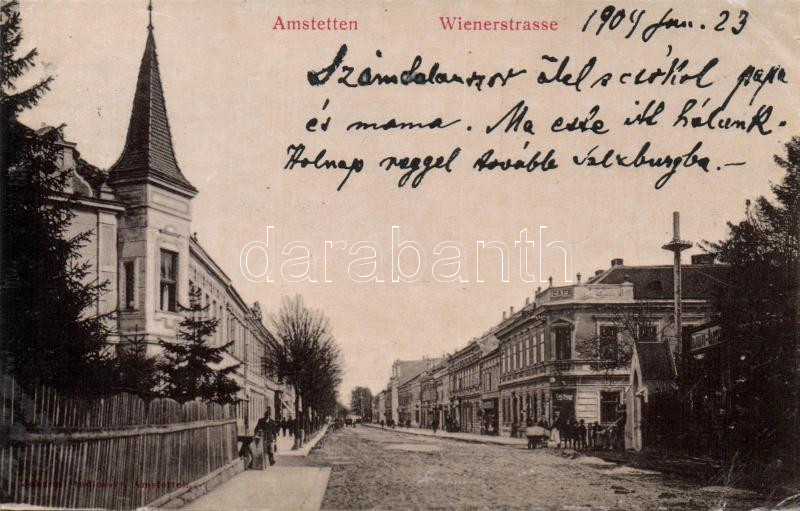 Amstetten Wienerstrasse 1904 Jan. 23
ölel s csókol papa
és mama. Ma este itt hálunk.
Holnap reggel tovább Salzburgba.—
darabanth
CAFÉ
Amstetten